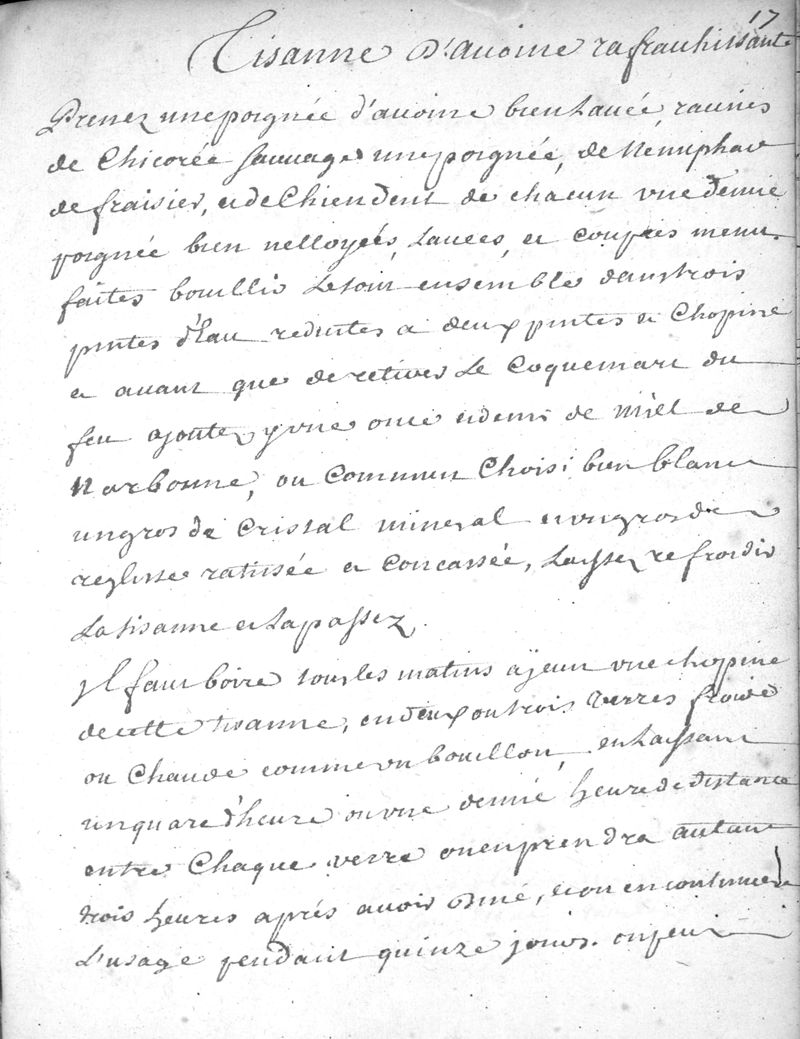 17
Tisanne D'auoine rafraichissante
Prenez une poignée d'auoine bien Lauée, racines
de Chicorée Sauuage une poignée, de Nenuphar
de fraisier, et de Chiendent de chacun vne demie
poignée bien nettoyées, Lauees, et coupées menu.
faites bouillir Le tout ensemble dans trois
pintes d'Eau reduites a deux pintes et Chopine
et auant que de retirer Le Coquemart du
feu ajoutez y vne once et demi de miel de
Narbonne, ou Commun Choisi bien blanc
un gros de Cristal mineral et un gros de
reglisse ratissée et Concassée, Laissez refroidir
La tisanne et La passez.
Il faut boire tous les matins a jeun vne chopine
de cette tisanne, en deux ou trois verres froide
ou Chaude comme vn bouillon, en Laissant
un quart d'heure ou vne demie heure de distance
entre Chaque verre on en prendra autant
trois heures aprés auoir diné, et on en continuera
L'usage pendant quinze jours. on peut